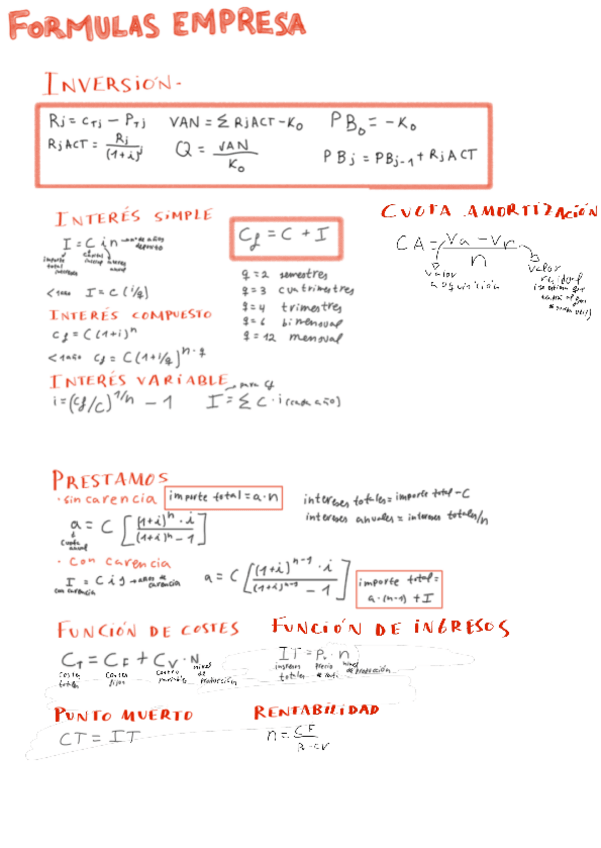 FORMULAS EMPRESA
INVERSIÓN-
Rj = CTj - PTj VAN = Σ RjACT - K₀ PB₀ = -K₀
RjACT = Rj/(1+i)ʲ Q = VAN/K₀ PBj = PBj-1 + RjACT
INTERÉS SIMPLE
I = C i n
importe total
anual
Cf = C + I
<1año I = C (i/q)
q = 2 semestres
q = 3 cuatrimestres
q = 4 trimestres
q = 6 bimensual
q = 12 mensual
INTERÉS COMPUESTO
Cf = C (1+i)ⁿ
<1año Cf = C (1+i/q)ⁿ·q
INTERÉS VARIABLE
i = (Cf/C)^1/n - 1 I = Σ C · i (cada año)
CUOTA AMORTIZACIÓN
CA = Va - Vr / n
valor adquisición
valor residual
PRESTAMOS
· sin carencia importe total = a·n
intereses totales = importe total - C
intereses anuales = intereses totales/n
a = C [(1+i)ⁿ · i / (1+i)ⁿ - 1]
cuota anual
· con carencia
I = C i j → años de carencia
con carencia
a = C [(1+i)ⁿ⁻¹ · i / (1+i)ⁿ⁻¹ - 1]
importe total =
a·(n-1) + I
FUNCIÓN DE COSTES
CT = CF + CV · N
costes totales costes fijos costes variables nivel de producción
FUNCIÓN DE INGRESOS
IT = P. n
ingresos totales precio de venta nivel de producción
PUNTO MUERTO
CT = IT
RENTABILIDAD
n = CF / P - CV